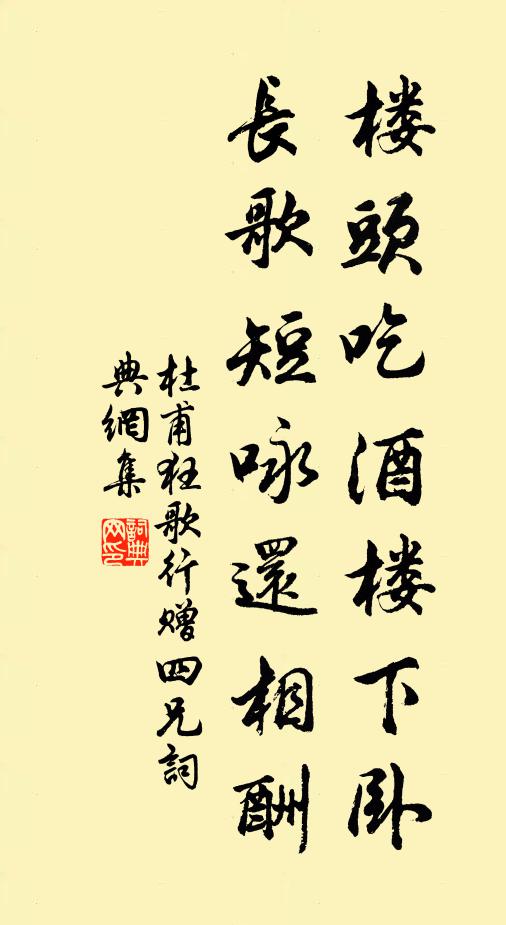 楼頭吃酒楼下卧
長歌短咏還相酬
杜甫狂歌行赠四兄詞
典網集
詞典網印